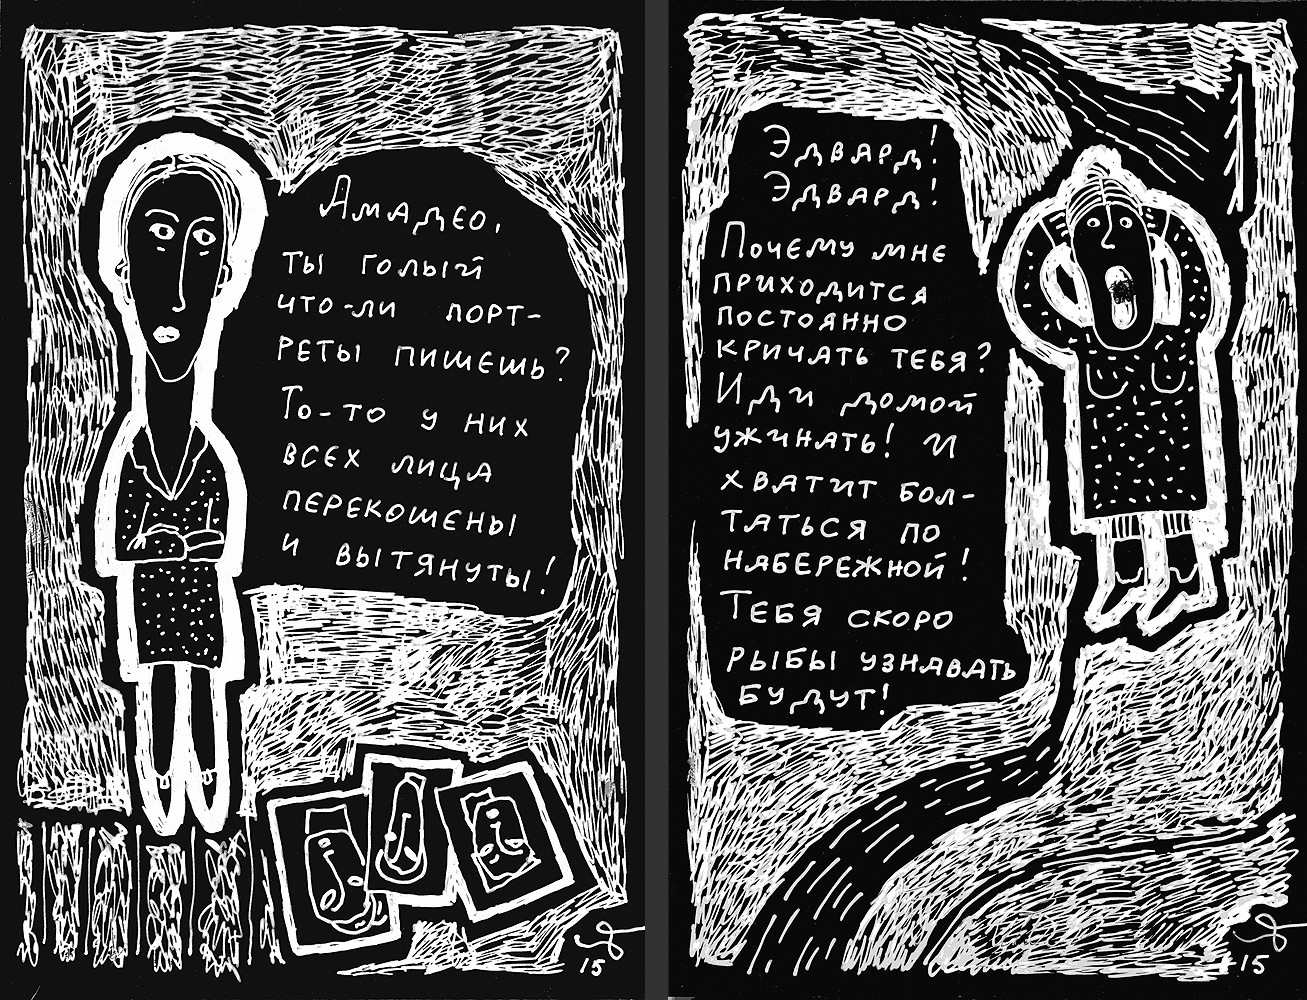 Амадео,
ты голый
что-ли порт-
реты пишешь?
То-то у них
всех лица
перекошены
и вытянуты!
15
Эдвард!
Эдвард!
Почему мне
приходится
постоянно
кричать тебя?
Иди домой
ужинать! И
хватит бол-
таться по
набережной!
Тебя скоро
рыбы узнавать
будут!
15